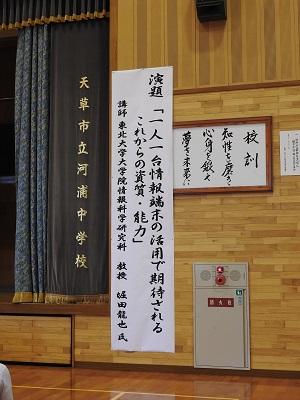 演題「一人一台情報端末の活用で期待される
これからの資質・能力」
講師 東北大学大学院情報科学研究科 教授 堀田龍也 氏
天草市立河浦中学校
校訓
知性を磨き
心身を鍛え
夢を未来に
消火栓